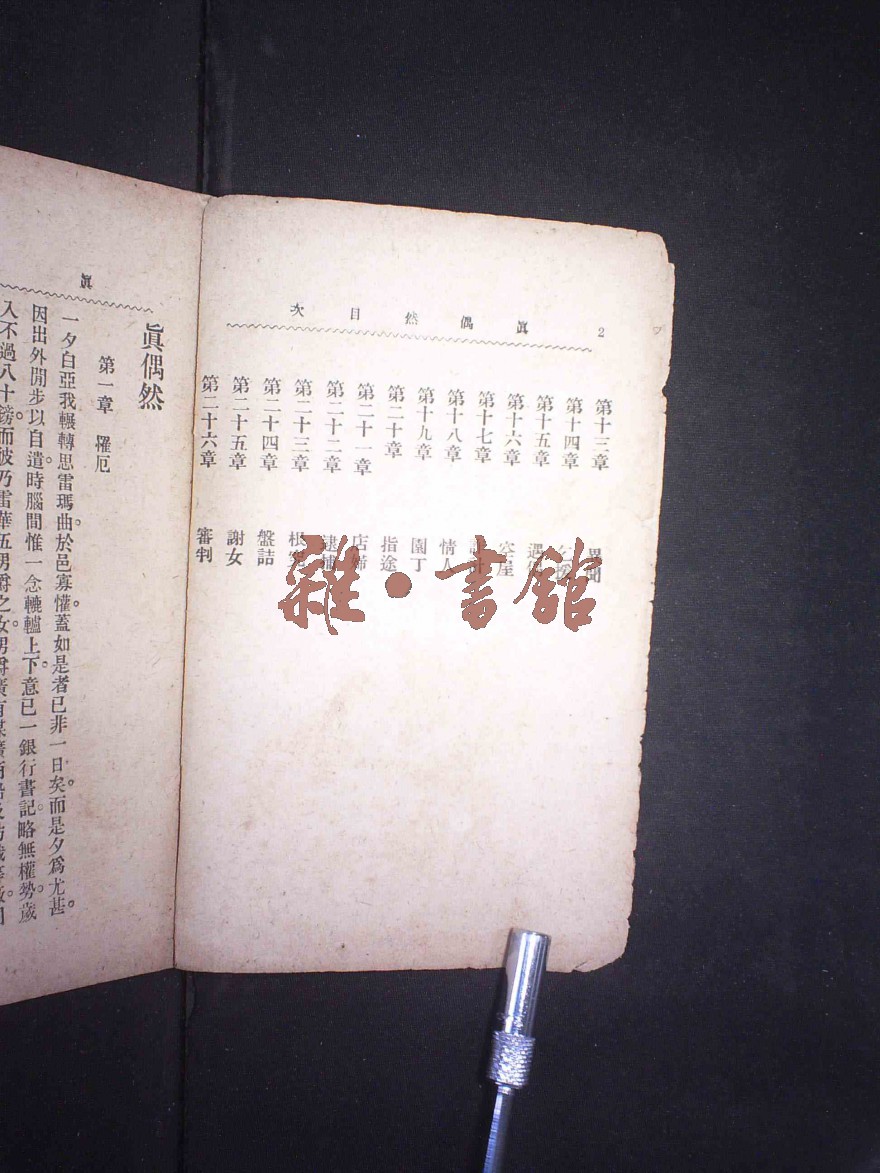 2 眞偶然目次
第十三章 異聞
第十四章
第十五章 遇
第十六章 空屋
第十七章
第十八章 情人
第十九章 園丁
第二十章 指途
第二十一章 店婦
第二十二章 逮捕
第二十三章 根究
第二十四章 盤詰
第二十五章 謝女
第二十六章 審判
雜·書館
眞
眞偶然
第一章 罹厄
一夕白亞我輾轉思雷瑪曲於邑寡懽蓋如是者已非一日矣。而是夕爲尤甚。
因出外閒步以自遣。時腦間惟一念轆轤上下。意已一銀行書記。略無權勢。歲
入不過八十鎊。而彼乃雷華五男爵之女。男爵廣有煤礦